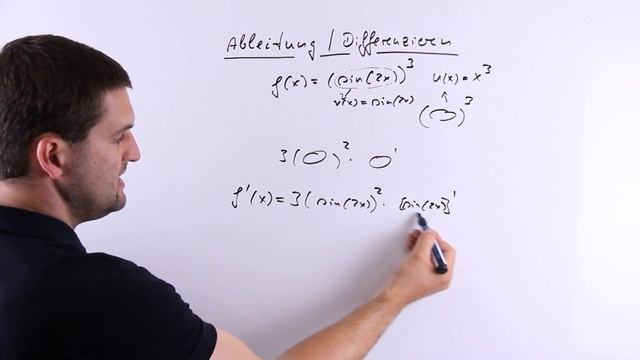 Ableitung / Differenzieren
f(x) = (sin(2x))³ u(x) = x³
v(x) = sin(2x) ( )³
3( )² · '
f'(x) = 3(sin(2x))² · [sin(2x)]'